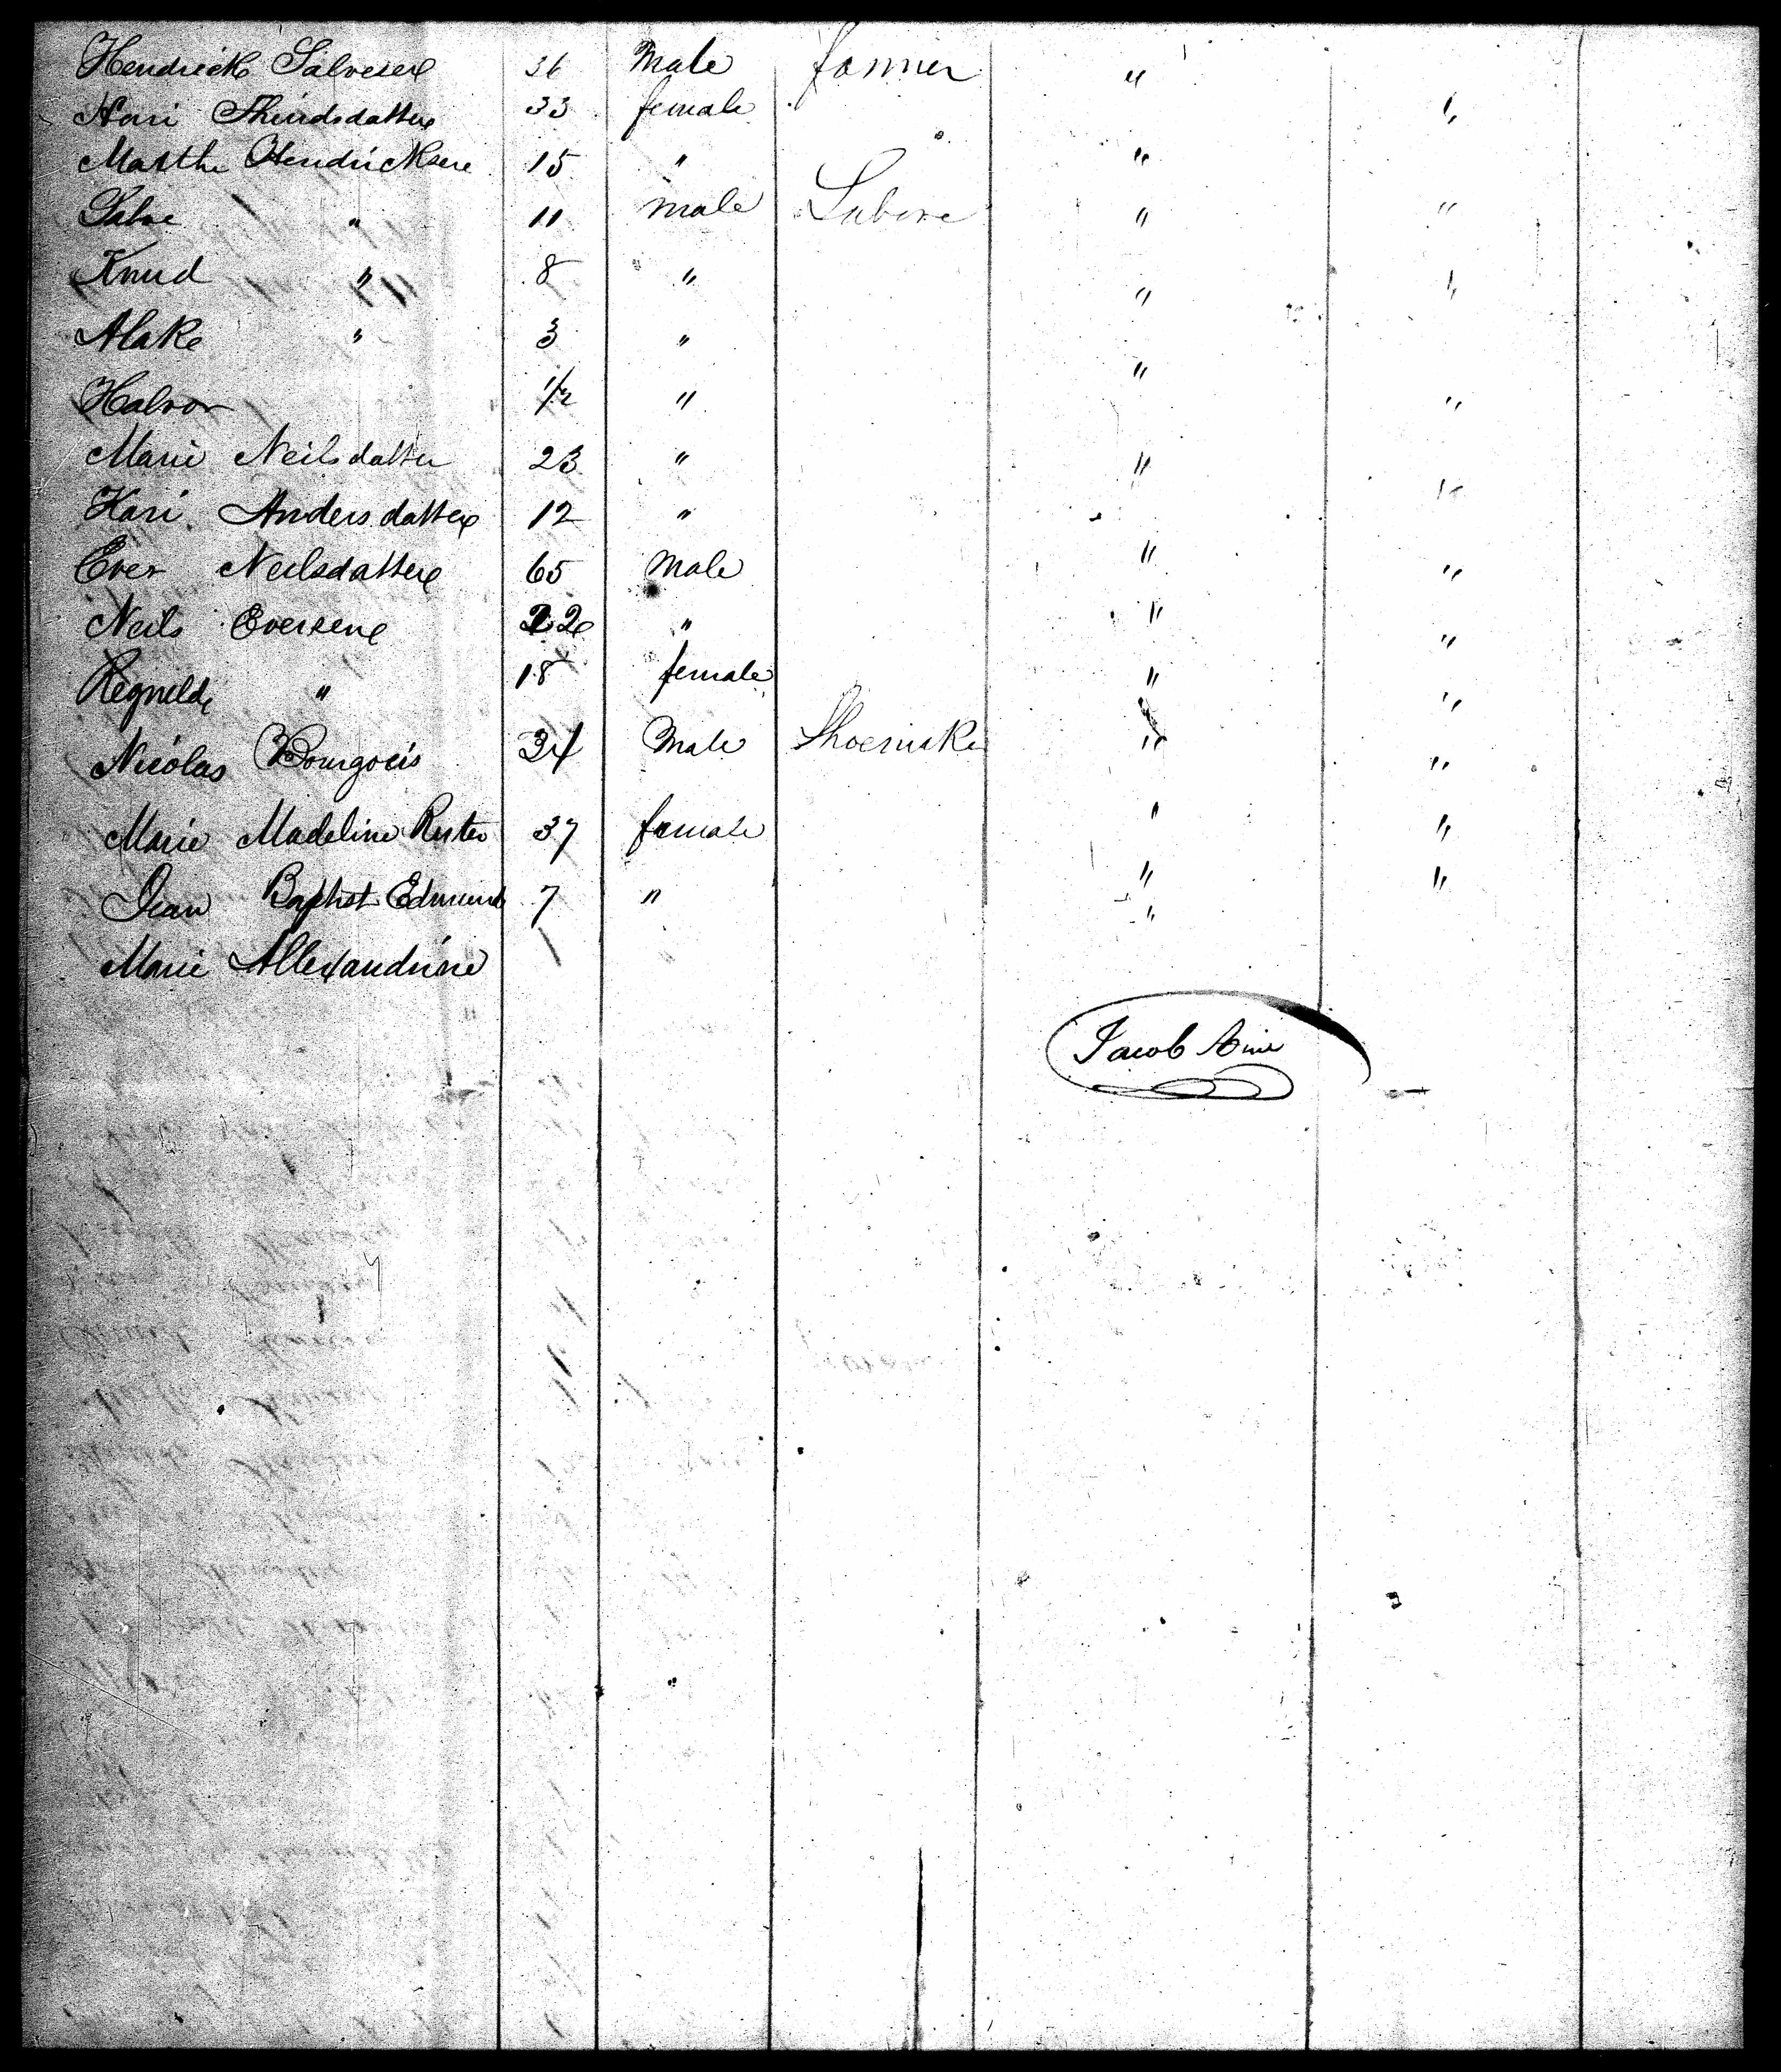 Hendrick Salvesen 36 Male farmer "
Kari 33 female "
Marthe Hendricksen 15 " "
Salve " 11 male Labore " "
Knud " 8 " " "
Alake " 3 " "
Halvor 1/2 " "
Marie Neilsdatter 23 " "
Kari Andersdatter 12 " "
Ever Neilsdatter 65 Male " "
Neils Eversen 22 " " "
Regnilde " 18 female " "
Nicolas Bourgois 34 Male Shoemaker " "
Marie Madeline Ruter 37 female " "
Jean Baptist Edmund 7 " " "
Marie Allexandrine 1 " "
Jacob